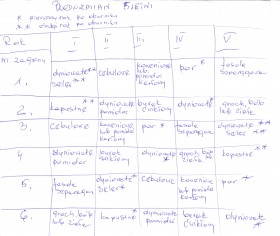 PŁODOZMIAN PIĘCIU
* pierwszy rok po oborniku
** drugi rok po oborniku
Rok I II III IV V
nr. zagonu
1. dyniowate ** seler cebulowe korzeniowe lub pomidor karłowy por * fasola szparagowa
2. kapustne ** dyniowate pomidor burak ćwikłowy dyniowate * groch, bób lub
3. cebulowe korzeniowe lub pomidor karłowy por * fasola szparagowa dyniowate seler **
4. dyniowate pomidor burak ćwikłowy dyniowate * groch, bób lub kapustne **
5. fasola szparagowa dyniowate seler ** cebulowe korzeniowe lub pomidor karłowy por *
6. groch, bób lub kapustne ** dyniowate pomidor burak ćwikłowy dyniowate *